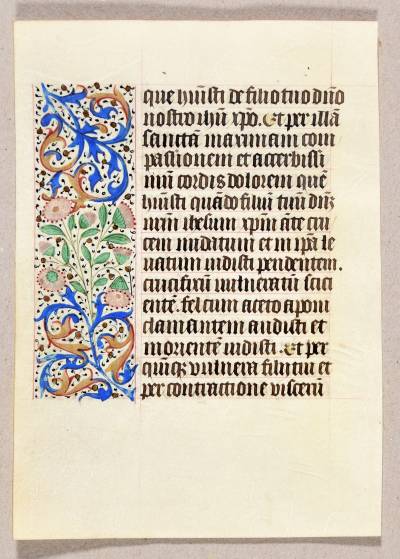 que hūisti de filio tuo dn̄o
nostro ihū xp̄o. Et per illā
sanctā maximam com
passionem et accerbissi
mū cordis dolorem quē
hūisti quādo filiū tuū dn̄ȝ
nr̄m ihesum xp̄m āte cru
cem nudatum et in ip̄a le
uatum uidisti pendentem.
crucifixū uulneratū scici
entē. fel cum aceto aponi
clamantem audisti et
morientē uidisti. Et per
quīqȝ uulnera filij tui et
per contractionē visceru̅